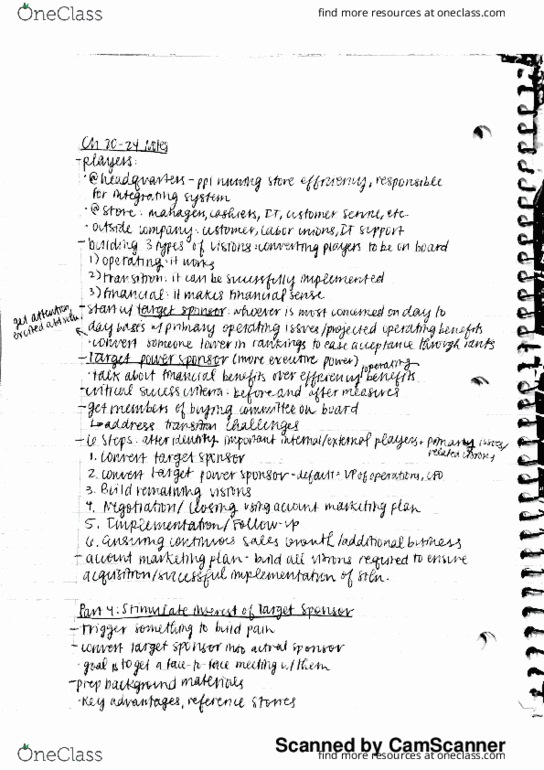 OneClass
find more resources at oneclass.com
Ch 20-24 notes
- players:
· @ headquarters - ppl running store efficiency, responsible
for integrating system
· @ store: managers, cashiers, IT, customer service, etc.
· outside company: customer, labor unions, IT support
- building 3 types of visions: converting players to be on board
1) operating: it works
2) transition: it can be successfully implemented
3) financial: it makes financial sense
- start w/ target sponsor: whoever is most concerned on day to
day basis w/ primary operating issues/projected operating benefits
get attention,
excited
· convert someone lower in rankings to ease acceptance through ranks
- Target power sponsor (more executive power)
· talk about financial benefits over efficiency/operating benefits
- critical success criteria: before and after measures
- get members of buying committee on board
↳ address transition challenges
- 6 Steps: after identify important internal/external players + primary issues/
related visions
1. Convert target sponsor
2. Convert target power sponsor - default = VP of operations, CFO
3. Build remaining visions
4. Negotiation/closing using account marketing plan
5. Implementation/Follow-up
6. Ensuring continuous sales growth/additional business
- account marketing plan - build all visions required to ensure
acquisition/successful implementation of soln.
Part 4: Stimulate Interest of Target Sponsor
- Trigger something to build pain
- convert target sponsor into actual sponsor
· goal is to get a face-to-face meeting w/ them
- prep background materials
· key advantages, reference stories
Scanned by CamScanner
OneClass
find more resources at oneclass.com